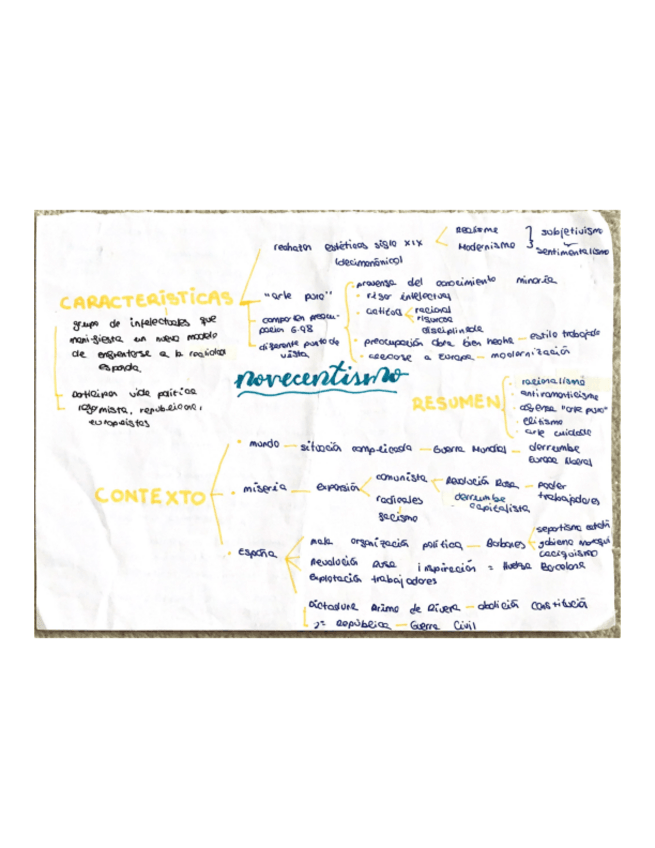 rechazan estéticas siglo XIX
(decimonónico)
Realismo
Modernismo
subjetivismo
sentimentalismo
CARACTERÍSTICAS
grupo de intelectuales que
manifiesta un nuevo modelo
de enfrentarse a la realidad
española
participan vida política
reformista, republicana,
europeístas
"arte puro"
comparten preocu-
pación G-98
diferente punto de
vista
del conocimiento minoría
rigor intelectual
actitud
racional
rigurosa
disciplinada
preocupación obra bien hecha — estilo trabajado
acercarse a Europa — modernización
novecentismo
RESUMEN
racionalismo
antiromanticismo
defensa "arte puro"
elitismo
arte cuidado
CONTEXTO
mundo — situación complicada — Guerra Mundial — derrumbe
Europa liberal
miseria — expansión
comunista — Revolución Rusa — poder
trabajadores
derrumbe
capitalista
radicales
fascismo
España
mala organización política — Borbones
gobierno
caciquismo
Revolución Rusa inspiración = Huelga Barcelona
explotación trabajadores
Dictadura Primo de Rivera — abolición constitución
2ª República — Guerra Civil